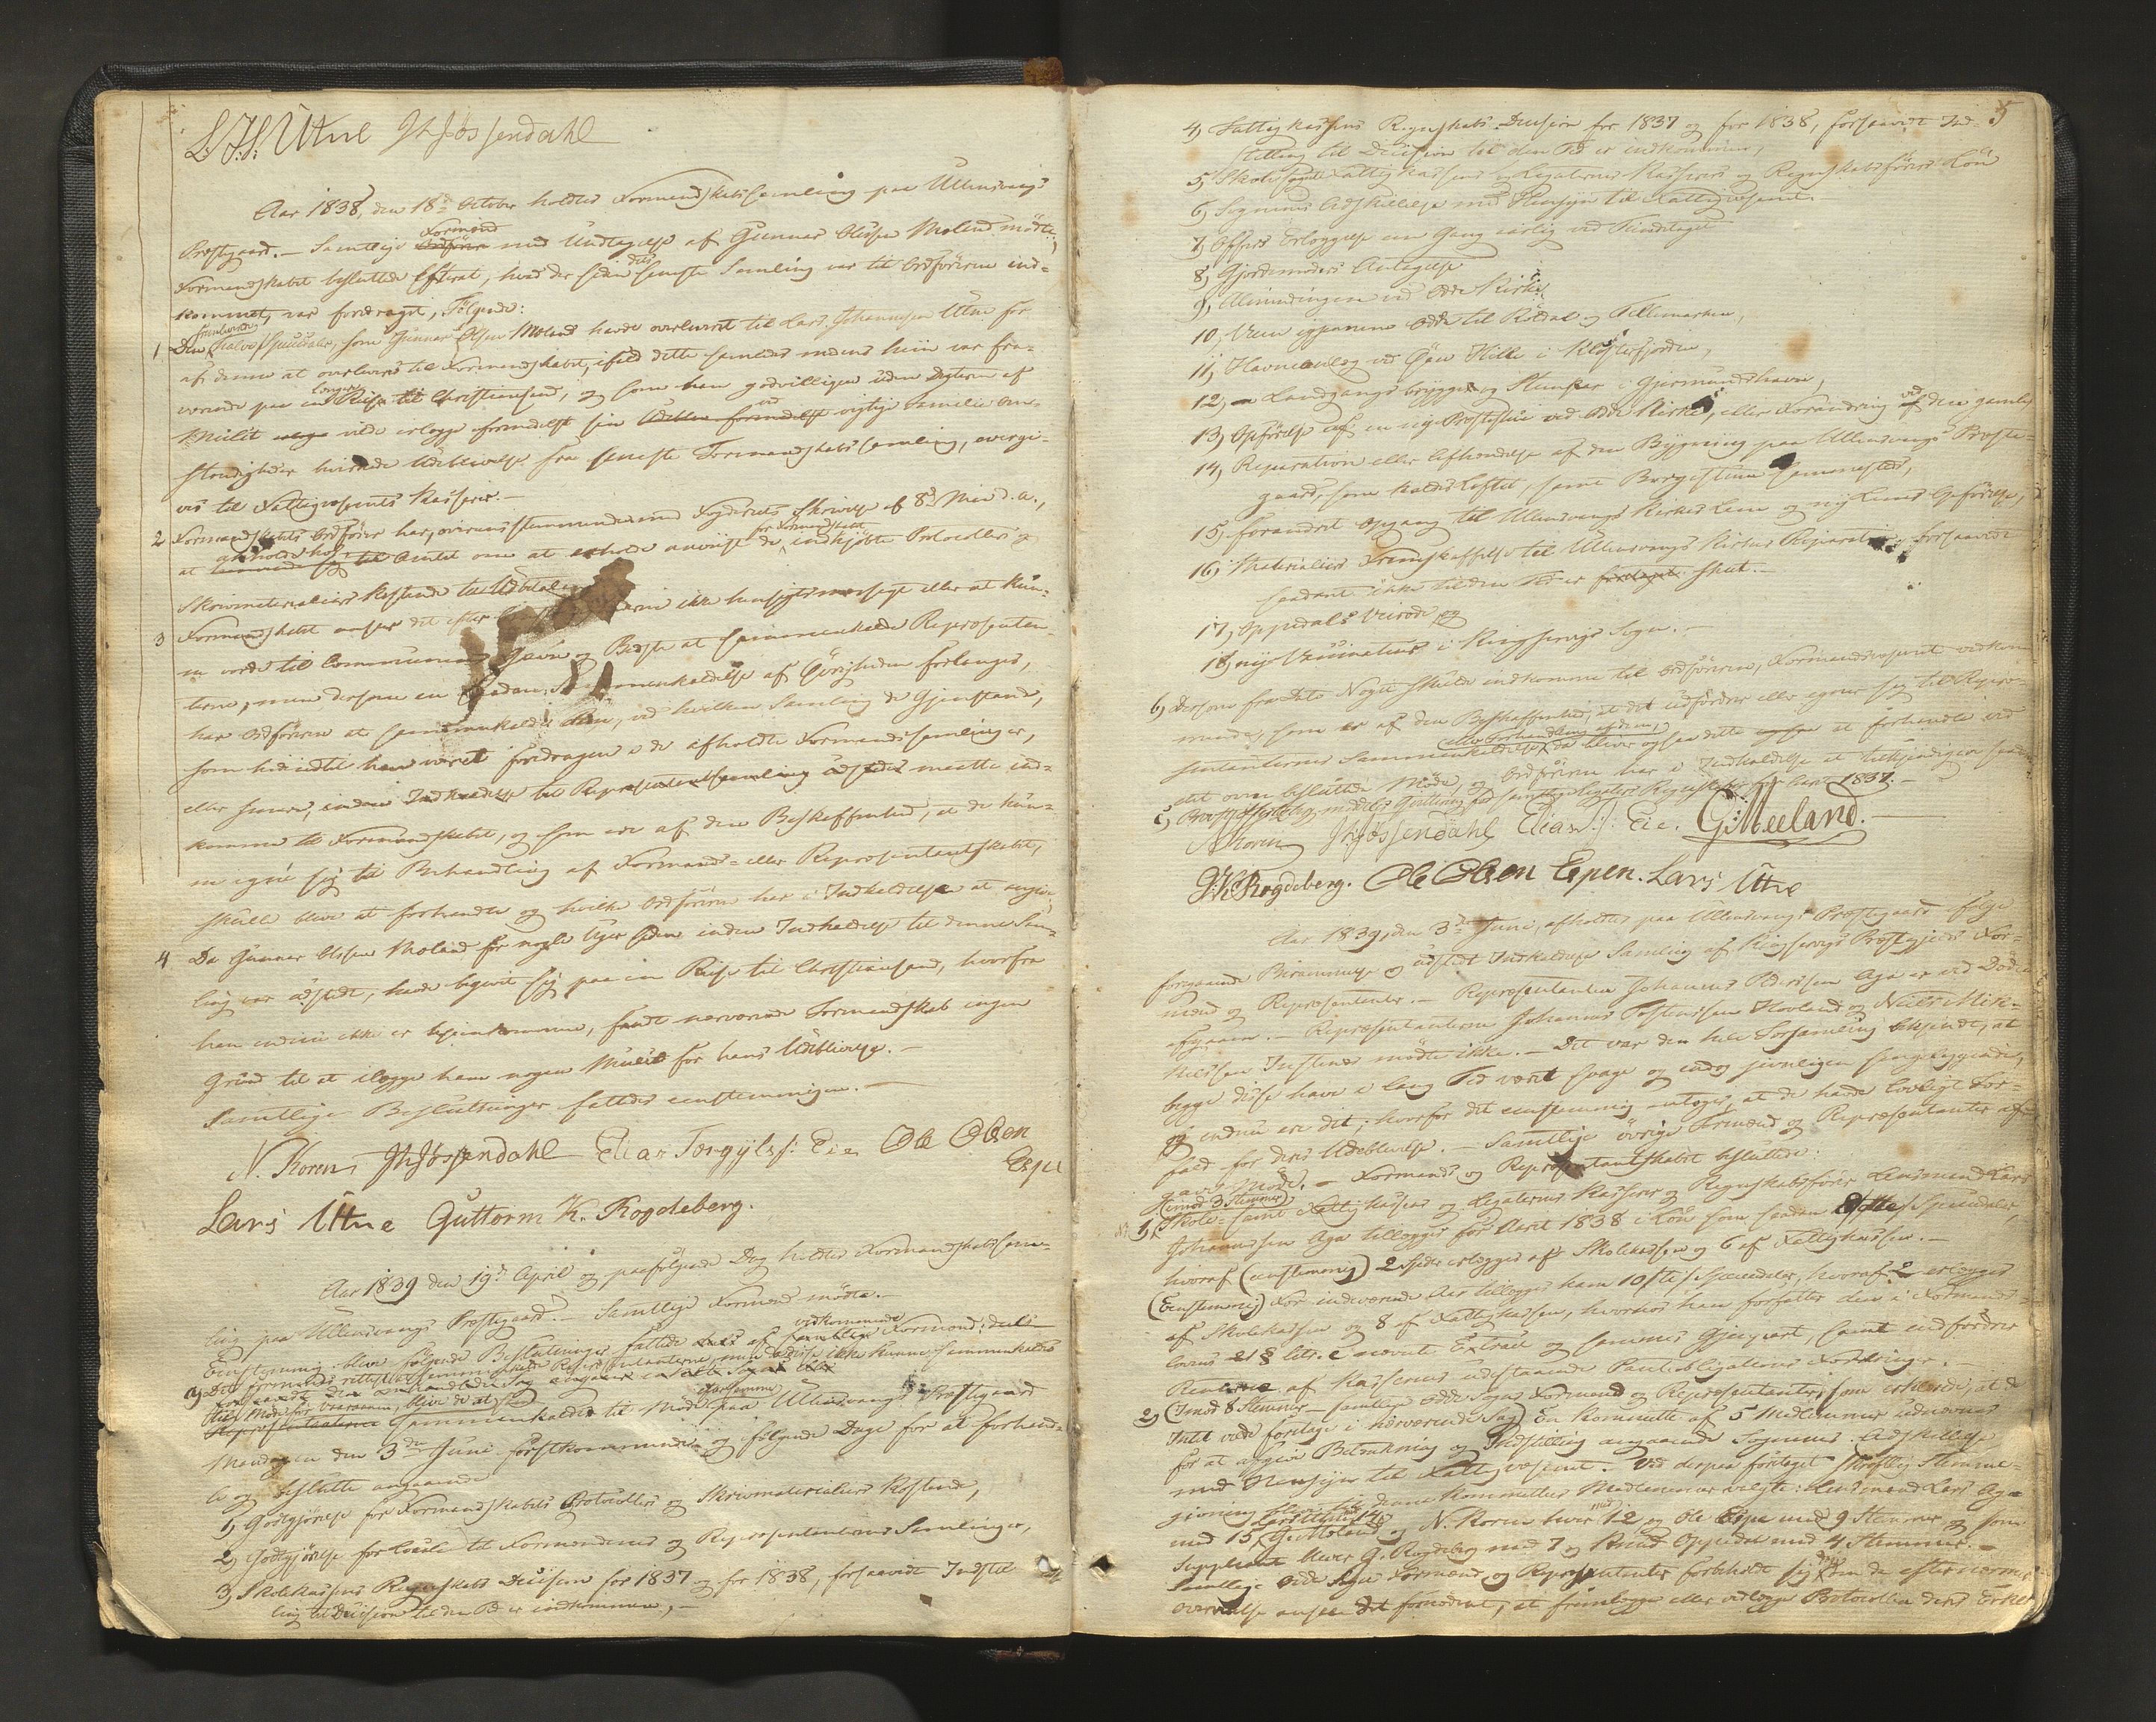 L. H. Utne JHJøssendahl
Aar 1838, den 18de October holdtes Formandskabssamling paa Ullensvangs
Præstgaard. – Samtlige Formænd med Undtagelse af Gunnar Olssen Moland mødte.
Formandskabet besluttede Efterat, hvad der siden dets seneste Samling var til Ordføreren ind-
kommet, var foredraget, Følgende:
1 Den halve Speciedaler, som Gunnar Olsen Moland havde overleveret til Lars Johannesen Utne for
af denne at overleveres til Formandskabet, ifald dette samledes medens hiin var fra-
værende paa en længere Reise til Christiansand, og som han godvilligen uden Dyteren af
Mulct vilde erlægge formedelst sin ved vigtige Familie Om-
stændigheder Udeblivelse fra seneste Formandskabssamling, overgi-
ves til Fattigvæsenets Kasserer. –
2 Formandskabets Ordfører har, overeensstemmende med Fogderiets Skrivelse af 8de d. A.,
at anholde hos Amtet om at erholde anviist de for Formandskabet indkjøbte Protocoller og
Skrivematerialiers Kostende til Udbetaling
3 Formandskabet anser det efter ikke hensigtsmæssigt eller at kun-
ne være til Communens Gavn og Bedste at sammenkalde Repræsentan-
terne, men dersom en saadan Sammenkaldelse af Øvrigheden forlanges,
har Ordføreren at sammenkalde dem, ved hvilken Samling de Gjenstande,
som hidindtil have været foredragne i de afholdte Formandssamlinger,
eller senere, inden Indkaldelse til Repræsentantsamling udstedes maatte ind-
komme til Formandskabet, og som ere af den Beskaffenhed, at de kun-
ne egne sig til Behandling af Formands- eller Repræsentantskabet,
skulle blive at forhandle og hvilke Ordføreren har i Indkaldelsen at angive.
4 Da Gunnar Olssen Moland for nogle Uger siden inden Indkaldelse til denne Sam-
ling var udstedt, havde begivet sig paa en Reise til Christiansand, hvorfra
han endnu ikke er hjemkommen, fandt nærværende Formandskab ingen
Grund til at ilægge ham nogen Mulct for hans Udeblivelse. –
Samtlige Beslutninger fattedes eenstemmigen. –
N. Koren JHJøssendahl Elias Torgylss: Eie Ole Olsen
Espe
Lars Utne Guttorm K. Rogdeberg.
Aar 1839 den 19de April og paafølgende Dag holdtes Formandskabssam-
ling paa Ullensvangs Præstgaard. – Samtlige Formænd mødte. –
Eenstemmig bleve følgende Beslutninger fattede af vedkommende Formænd:
Sammenkaldes til Møde paa Ullensvangs Præstgaard
Mandagen den 3die Juni førstkommende og følgende Dage for at forhand-
le og beslutte angaaende
1, Godtgjørelse for Formandskabets Protocollers og Skrivematerialiers Kostende,
2, Godtgjørelse for Locale til Formændenes og Repræsentanternes Samlinger,
3, Skolekassens Regnskabs Decision for 1837 og for 1838, forsaavidt Indstil
ling til Decision til den Tid er indkommen, –
5
4, Fattigkassens Regnskabs-Decision for 1837 og for 1838, forsaavidt Ind-
stilling til Decision til den Tid er indkommen,
5, Skole- samt Fattigkassens og Legaternes Kasserers og Regnskabsførers Løn
6, Sognenes Adskillelse med Hensyn til Fattigvæsenet. –
7, Offers Erlæggelse een Gang aarlig ved Tiendetaget
8, Gjordemoders Antagelse
9, Almindingen ved Odde Kirke,
10, Veien igjennem Odde til Røldal og Tellemarken,
11, Havneanlæg ved Øen Hille i Klosterfjorden,
12, Landgangsbrygge og Skuur i Gjermundshavn,
13, Opførelse af en ny Præstestue ved Odde Kirke, eller Forandring ved den gamle
14, Reparation eller Afhændelse af den Bygning paa Ullensvangs Præste-
gaard, som kaldes Loftet, samt Borgestuen sammesteds,
15, forandret Opgang til Ullensvangs Kirkes Lem og ny Lems Opførelse,
16, Materialiers Fremskaffelse til Ullensvangs Kirkes Reparation, forsaavidt
saadant ikke til den Tid er skeet. –
17, Oppedals Veirode og
18, ny Vaccinateur i Kingservigs Sogn. –
b, Dersom fra Dato Noget skulde indkomme til Ordføreren, Formandsvæsenet vedkom-
mende, som er af den Beskaffenhed, at det udfordrer eller egner sig til Repræ-
sentanternes Sammenkaldelse eller Forhandling af dem, da bliver ogsaa dette at forhandle ved
det ovenbesluttede Møde, og Ordføreren har i Indkaldelse at tilkjendegive saadant
c, for Aaret 1837. –
N Koren JHJøssendahl Elias T:s: Eie. G: Meeland.
G: K: Rogdeberg. Ole Olsen Espen. Lars Utne
Aar 1839, den 3die Juni, afholdtes paa Ullensvangs Præstgaard ifølge
foregaaende Berammelse og udstedt Indkaldelse Samling af Kingservigs Præstgjelds For-
mænd og Repræsentanter. – Repræsentanten Johannes Pedersen Aga er ved Døden
afgaaen. – Repræsentanterne Johannes Torstensen Hovland og Niels
Nielssen Instenes mødte ikke. – Det var den hele Forsamling bekjendt, at
begge disse have i lang Tid været svage og endog jevnligen sengeliggende,
og endnu ere det; hvorfor det eenstemmig antoges, at de havde lovligt For-
fald for deres Udeblivelse. – Samtlige øvrige Formænd og Repræsentanter af-
gave Møde. – Formands og Repræsentantskabet besluttede:
(imod 3 Stemmer)
1, Skole- samt Fattigkassens og Legaternes Kasserer og Regnskabsfører Lensmand Lars
Johannessen Aga tillægges for Aaret 1838 i Løn som saadan Otte Speciedaler,
hvoraf (eenstemmig) 2 Spdlr erlægges af Skolekassen og 6 af Fattigkassen. –
(Eenstemmig) For indeværende Aar tillægges ham 10/ti/ Speciedaler, hvoraf 2 erlægges
af Skolekassen og 8 af Fattigkassen, hvorhos han forfatter den i Formands-
lovens 21 § litr. c nævnte Extract og sammes Gjenpart, samt indfordrer
Renterne af Kassernes udestaaende Pantobligations Fordringer.
2, (Imod 8 Stemmer – samtlige Odde Sogns Formænd og Repræsentanter, som erklærede, at de
Intet vilde foretage i nærværende Sag) En Kommitte af 5 Medlemmer udnævnes
for at afgive Betænkning og Indstilling angaaende Sognenes Adskillelse
med Hensyn til Fattigvæsenet. Ved derpaa foretaget skriftlig Stemme-
givning bleve til denne Kommittes Medlemmer valgte: Lensmand Lars Aga
med 15, G. Moland og N. Koren hver med 12 og Ole Espe med 9 Stemmer og som
Suppleant blev G. Rogdeberg med 7 og Knud Oppedal med 4 Stemmer. –
Samtlige Odde Sogns Formænd og Repræsentanter forbeholdt sig den de efter nærmere
Overveielse ansee det fornødent, at fremlægge eller vedlægge Protocollen deres Erklæ